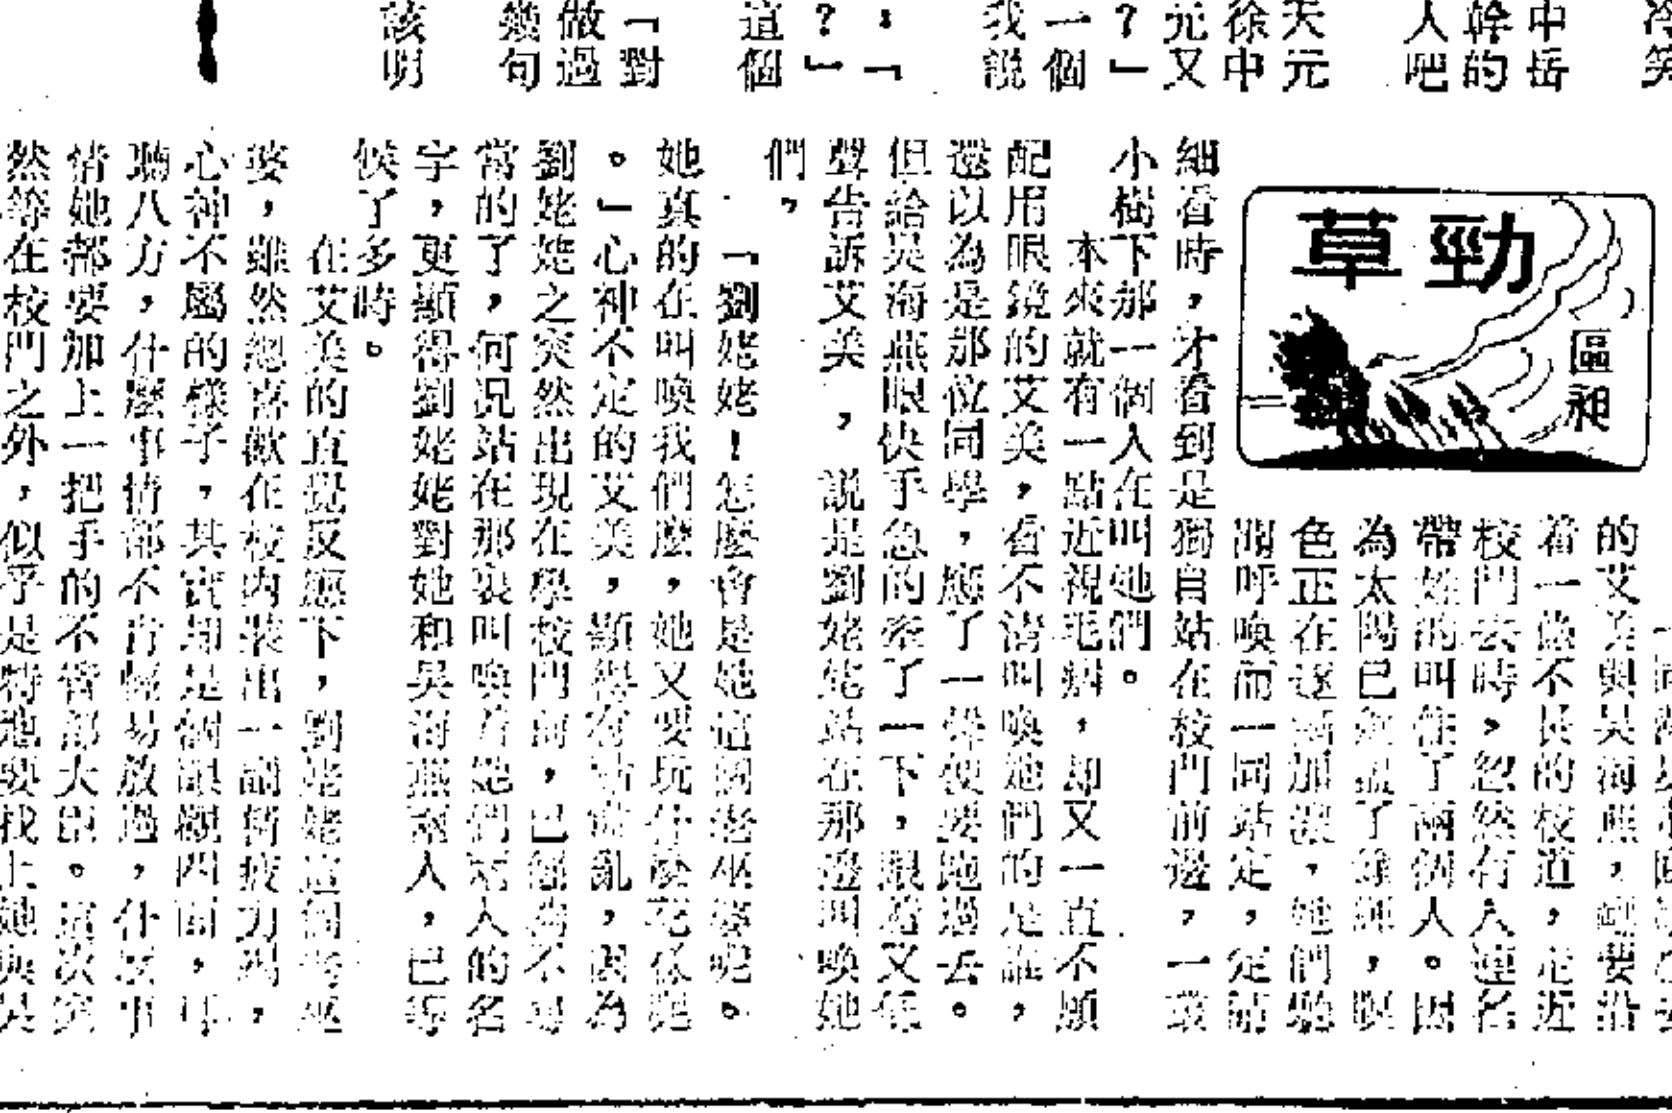 冷笑
中岳
幹的
人吧
天元
徐中
元又
？」
一個
我說
：「
？」
這個
「對
做過
幾句
該明
勁草
區昶
的艾美與吳海燕，剛要沿
着一條不長的校道，走近
校門去時，忽然有人連名
帶姓的叫住了兩個人。因
為太陽已經盡了餘輝，暝
色正在逐漸加濃，她們聽
聞呼喚而一同站定，定睛
細看時，才看到是獨自站在校門前邊，一叢
小樹下那一個人在叫她們。
本來就有一點近視毛病，却又一直不願
配用眼鏡的艾美，看不清叫喚她們的是誰，
還以為是那位同學，應了一聲便要跑過去。
但給吳海燕眼快手急的牽了一下，跟着又低
聲告訴艾美，說是劉姥姥站在那邊叫喚她
們，
「劉姥姥！怎麼會是她這個老巫婆呢。
她真的在叫喚我們麼，她又要玩什麼花樣呢
。」心神不定的艾美，顯得有點慌亂，因為
劉姥姥之突然出現在學校門前，已經為不尋
當的了，何況站在那裏叫喚着她們兩人的名
字，更顯得劉姥姥對她和吳海燕兩人，已等
候了多時。
在艾美的直覺反應下，劉姥姥這個老巫
婆，雖然總喜歡在校內裝出一副疲力竭，
心神不屬的樣子，其實却是個眼觀四面，耳
聽八方，什麼事情都不肯輕易放過，什麼事
情她都要加上一把手的不管部大臣。這次突
然等在校門之外，似乎是特地要找上她與吳